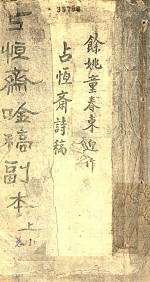 35798
餘姚童春東廼作
占恒齋詩稿
占恒齋唫稿副本
上